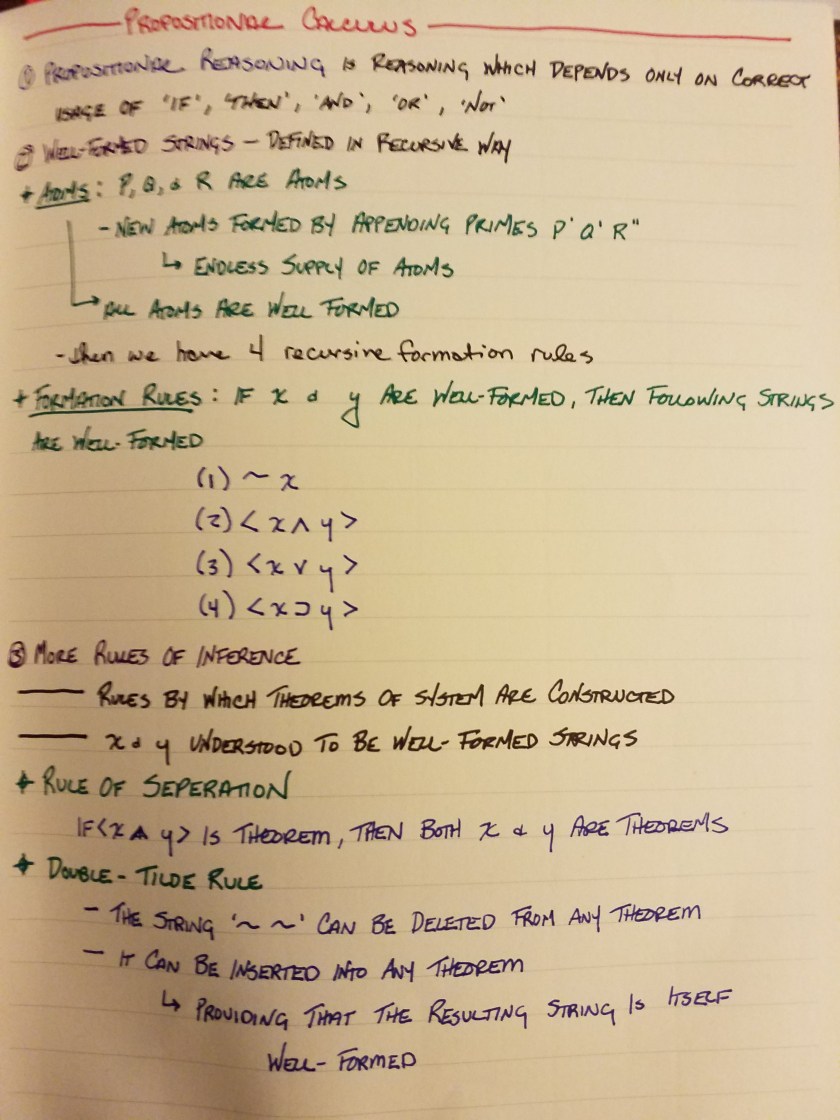 PROPOSITIONAL CALCULUS
① PROPOSITIONAL REASONING IS REASONING WHICH DEPENDS ONLY ON CORRECT
USAGE OF 'IF', 'THEN', 'AND', 'OR', 'NOT'
② WELL-FORMED STRINGS — DEFINED IN RECURSIVE WAY
+ ATOMS: P, Q, & R ARE ATOMS
- NEW ATOMS FORMED BY APPENDING PRIMES P' Q' R"
↳ ENDLESS SUPPLY OF ATOMS
→ ALL ATOMS ARE WELL FORMED
- then we have 4 recursive formation rules
+ FORMATION RULES: IF x & y ARE WELL-FORMED, THEN FOLLOWING STRINGS
ARE WELL-FORMED
(1) ~ x
(2) < x ∧ y >
(3) < x ∨ y >
(4) < x ⊃ y >
③ MORE RULES OF INFERENCE
— RULES BY WHICH THEOREMS OF SYSTEM ARE CONSTRUCTED
— x & y UNDERSTOOD TO BE WELL-FORMED STRINGS
+ RULE OF SEPERATION
IF <x ∧ y> IS THEOREM, THEN BOTH x & y ARE THEOREMS
+ DOUBLE-TILDE RULE
- THE STRING '~ ~' CAN BE DELETED FROM ANY THEOREM
- IT CAN BE INSERTED INTO ANY THEOREM
↳ PROVIDING THAT THE RESULTING STRING IS ITSELF
WELL-FORMED